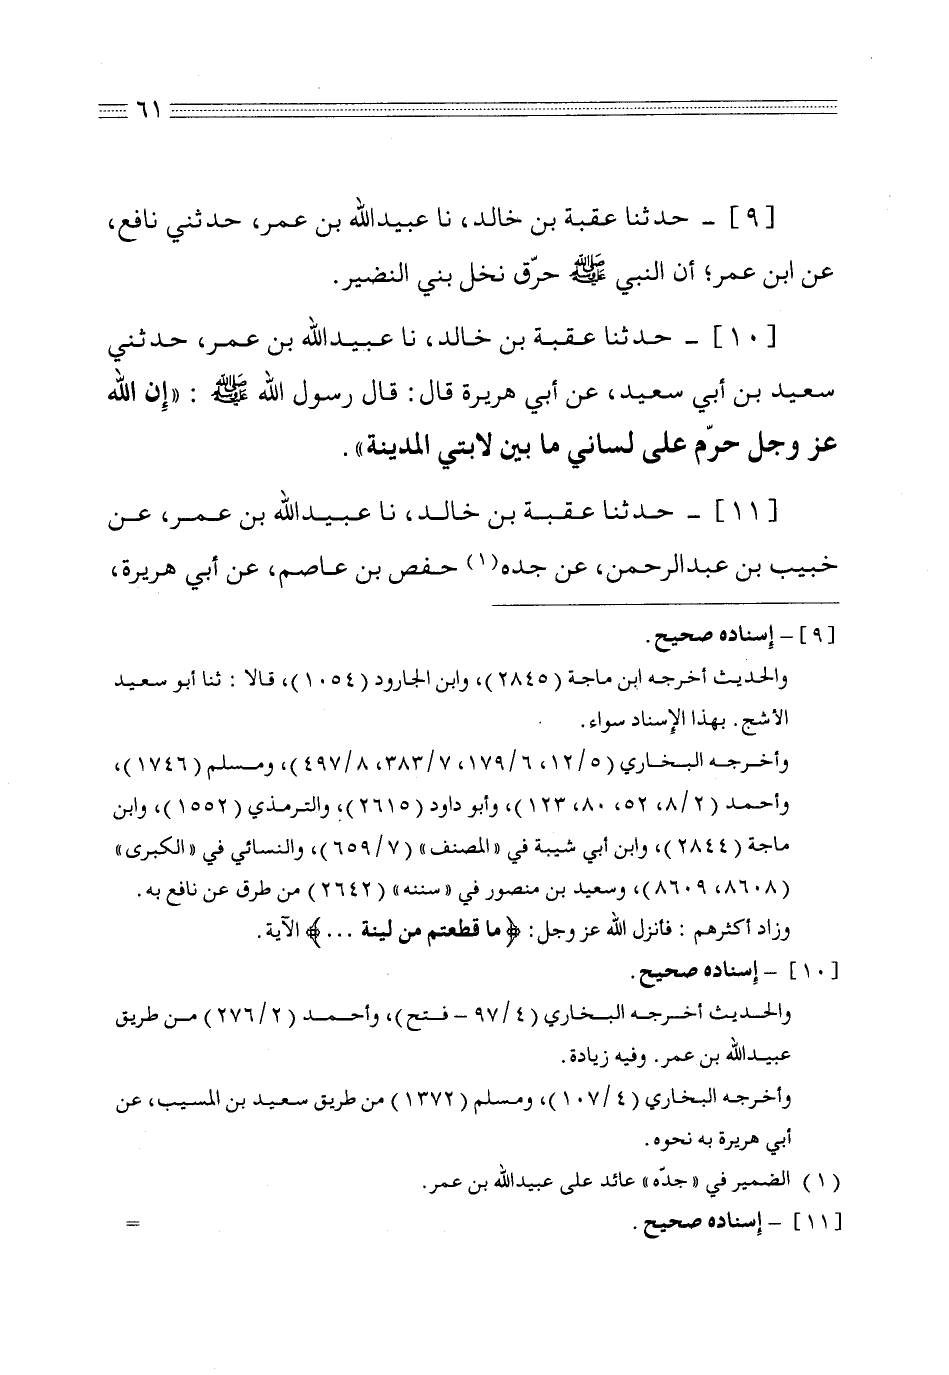 ٦١
[٩] ــ حدثنا عقبة بن خالد، نا عبيدالله بن عمر، حدثني نافع،
عن ابن عمر؛ أن النبي ﷺ حرّق نخل بني النضير.
[١٠] ــ حدثنا عقبة بن خالد، نا عبيدالله بن عمر، حدثني
سعيد بن أبي سعيد، عن أبي هريرة قال: قال رسول الله ﷺ : «إن الله
عز وجل حرّم على لساني ما بين لابتي المدينة».
[١١] ــ حدثنا عقبة بن خالد، نا عبيدالله بن عمر، عن
خبيب بن عبدالرحمن، عن جده(١) حفص بن عاصم، عن أبي هريرة،
[٩] – إسناده صحيح.
والحديث أخرجه ابن ماجة (٢٨٤٥)، وابن الجارود (١٠٥٤)، قالا : ثنا أبو سعيد
الأشج. بهذا الإسناد سواء.
وأخرجه البخاري (١٢/٥، ١٧٩/٦، ٣٨٣/٧، ٤٩٧/٨)، ومسلم (١٧٤٦)،
وأحمد (٨/٢، ٥٢، ٨٠، ١٢٣)، وأبو داود (٢٦١٥)، والترمذي (١٥٥٢)، وابن
ماجة (٢٨٤٤)، وابن أبي شيبة في «المصنف» (٦٥٩/٧)، والنسائي في «الكبرى»
(٨٦٠٨، ٨٦٠٩)، وسعيد بن منصور في «سننه» (٢٦٤٢) من طرق عن نافع به.
وزاد أكثرهم : فأنزل الله عز وجل: ﴿ما قطعتم من لينة ...﴾ الآية.
[١٠] – إسناده صحيح.
والحديث أخرجه البخاري (٩٧/٤ – فتح)، وأحمد (٢٧٦/٢) من طريق
عبيدالله بن عمر. وفيه زيادة.
وأخرجه البخاري (١٠٧/٤)، ومسلم (١٣٧٢) من طريق سعيد بن المسيب، عن
أبي هريرة به نحوه.
(١) الضمير في «جدّه» عائد على عبيدالله بن عمر.
[١١] – إسناده صحيح. =